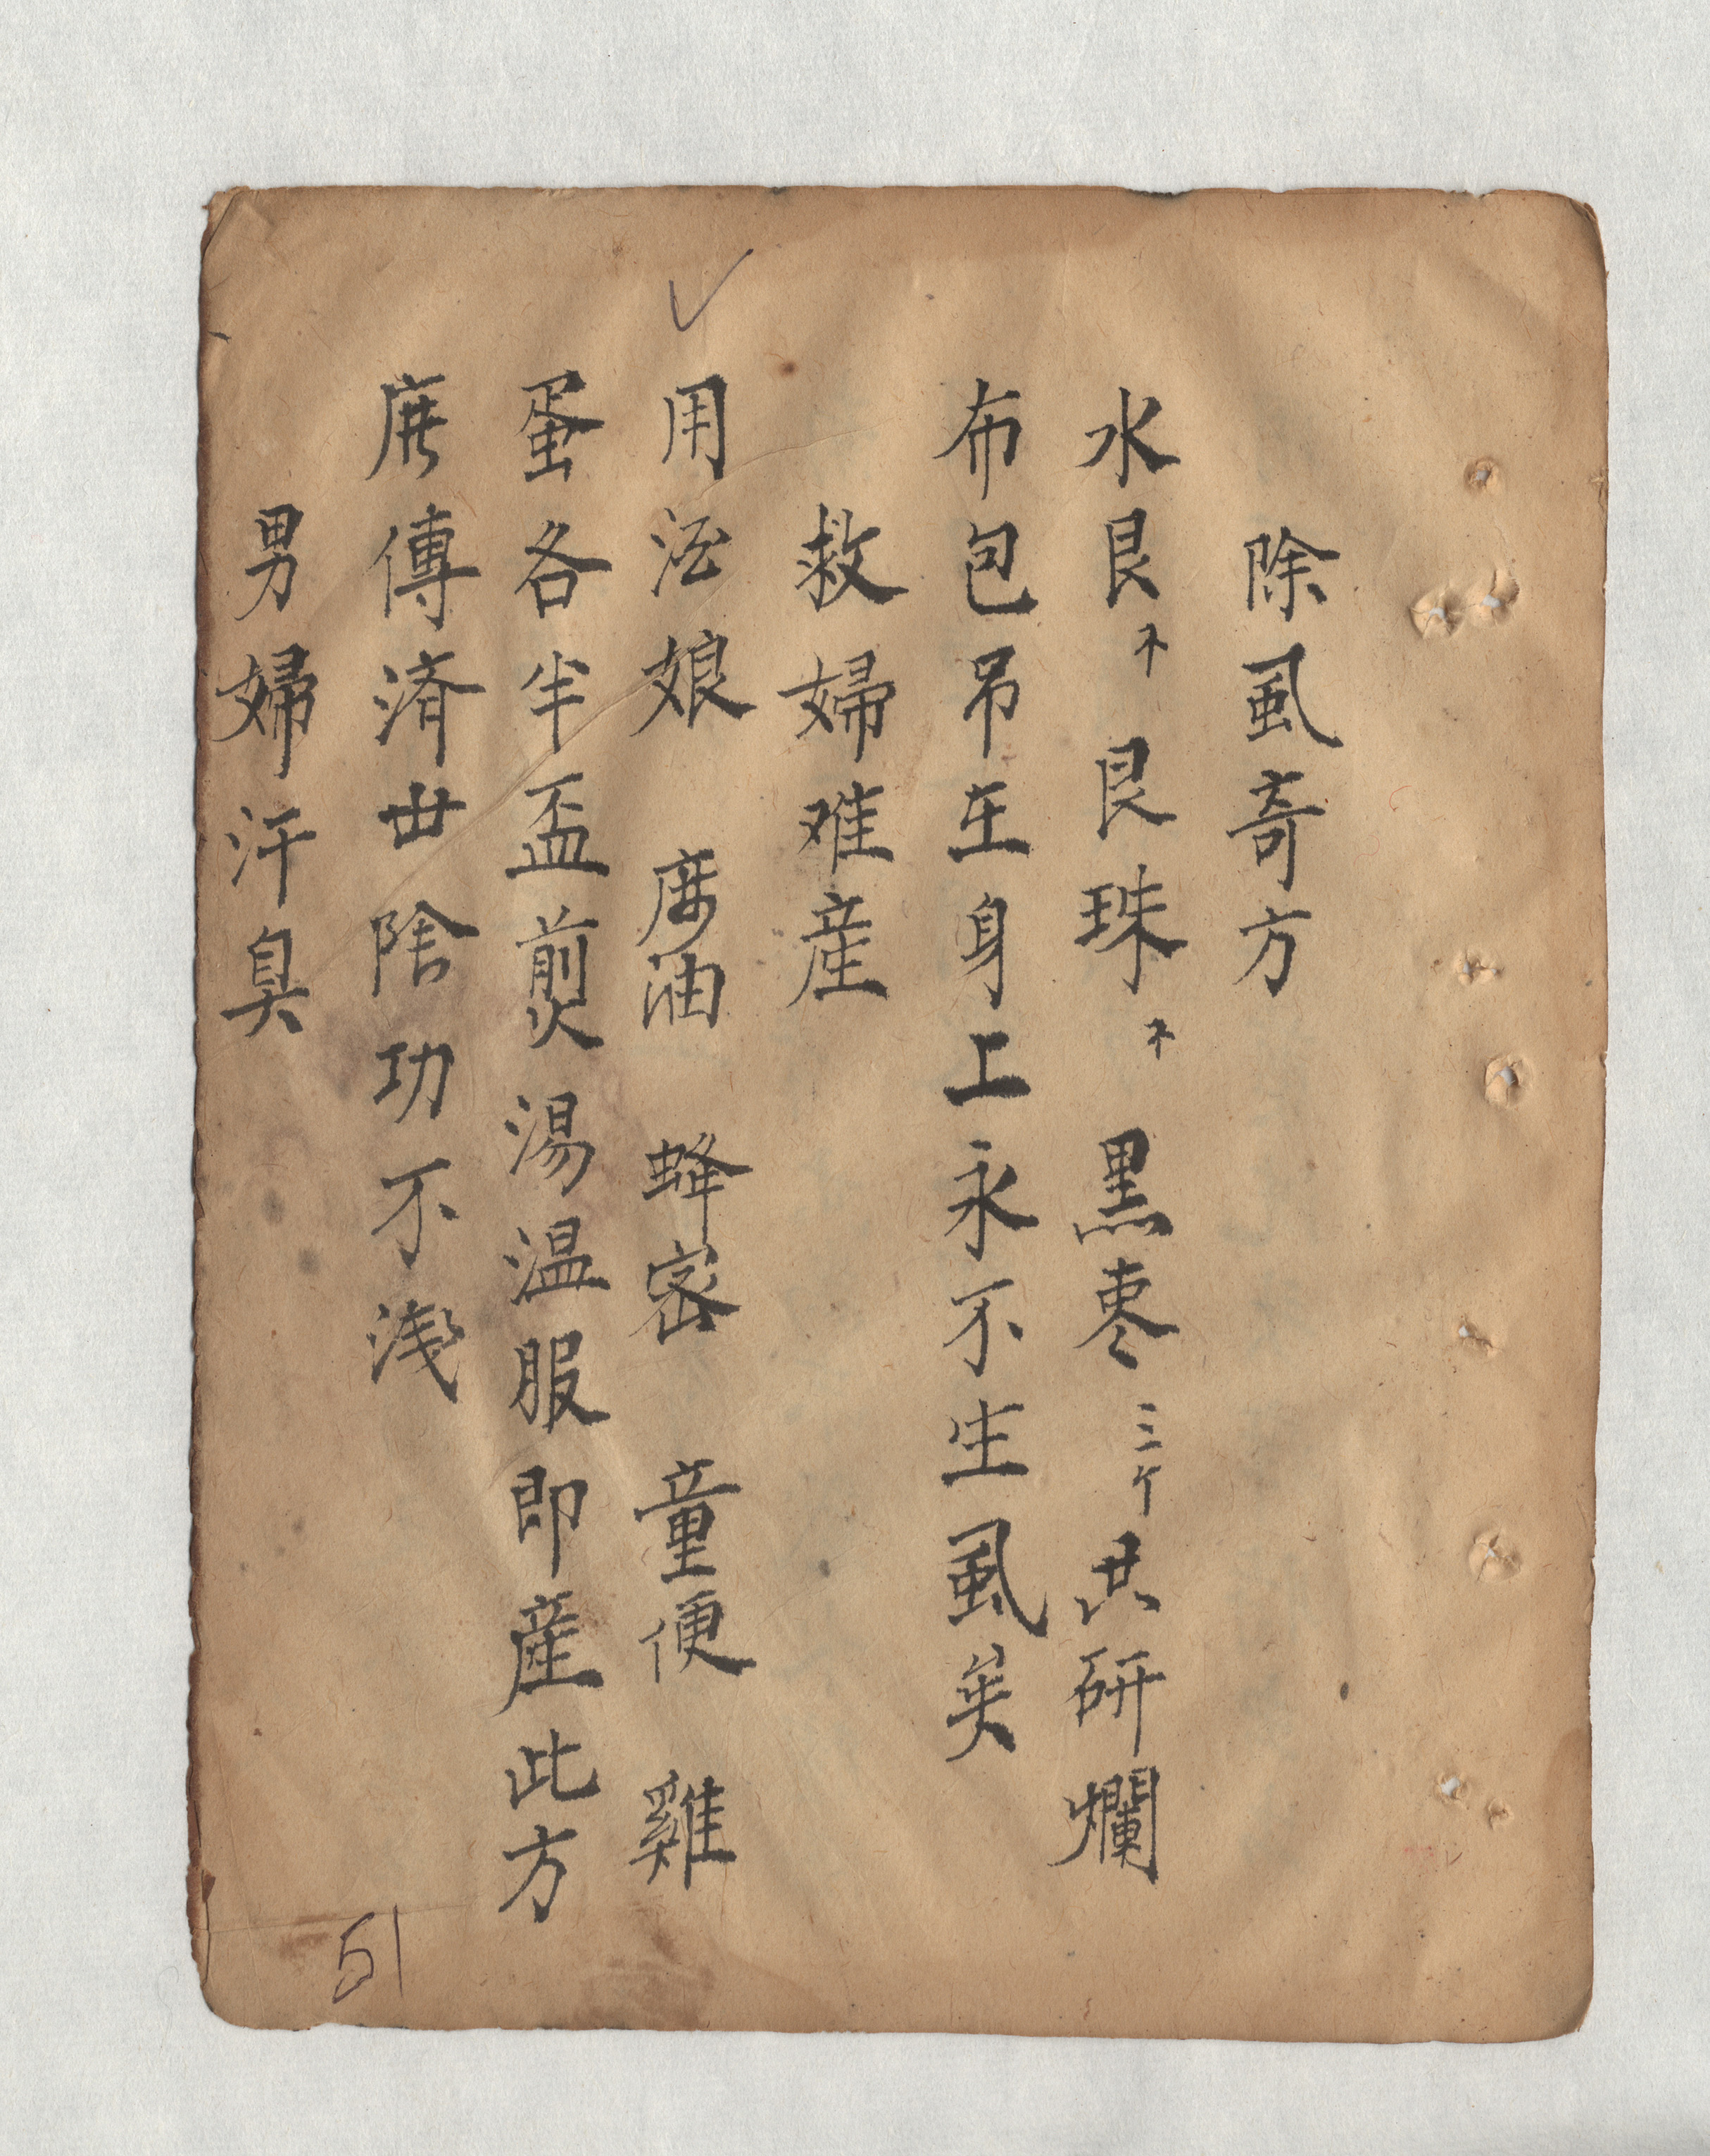 除虱奇方
水艮 艮珠 黑枣三个共研爛
布包吊在身上永不生虱矣
救婦难産
用酒娘 麻油 蜂密 童便 雞
蛋各半盃煎湯温服即産此方
廣傳済世陰功不浅
男婦汗臭
51